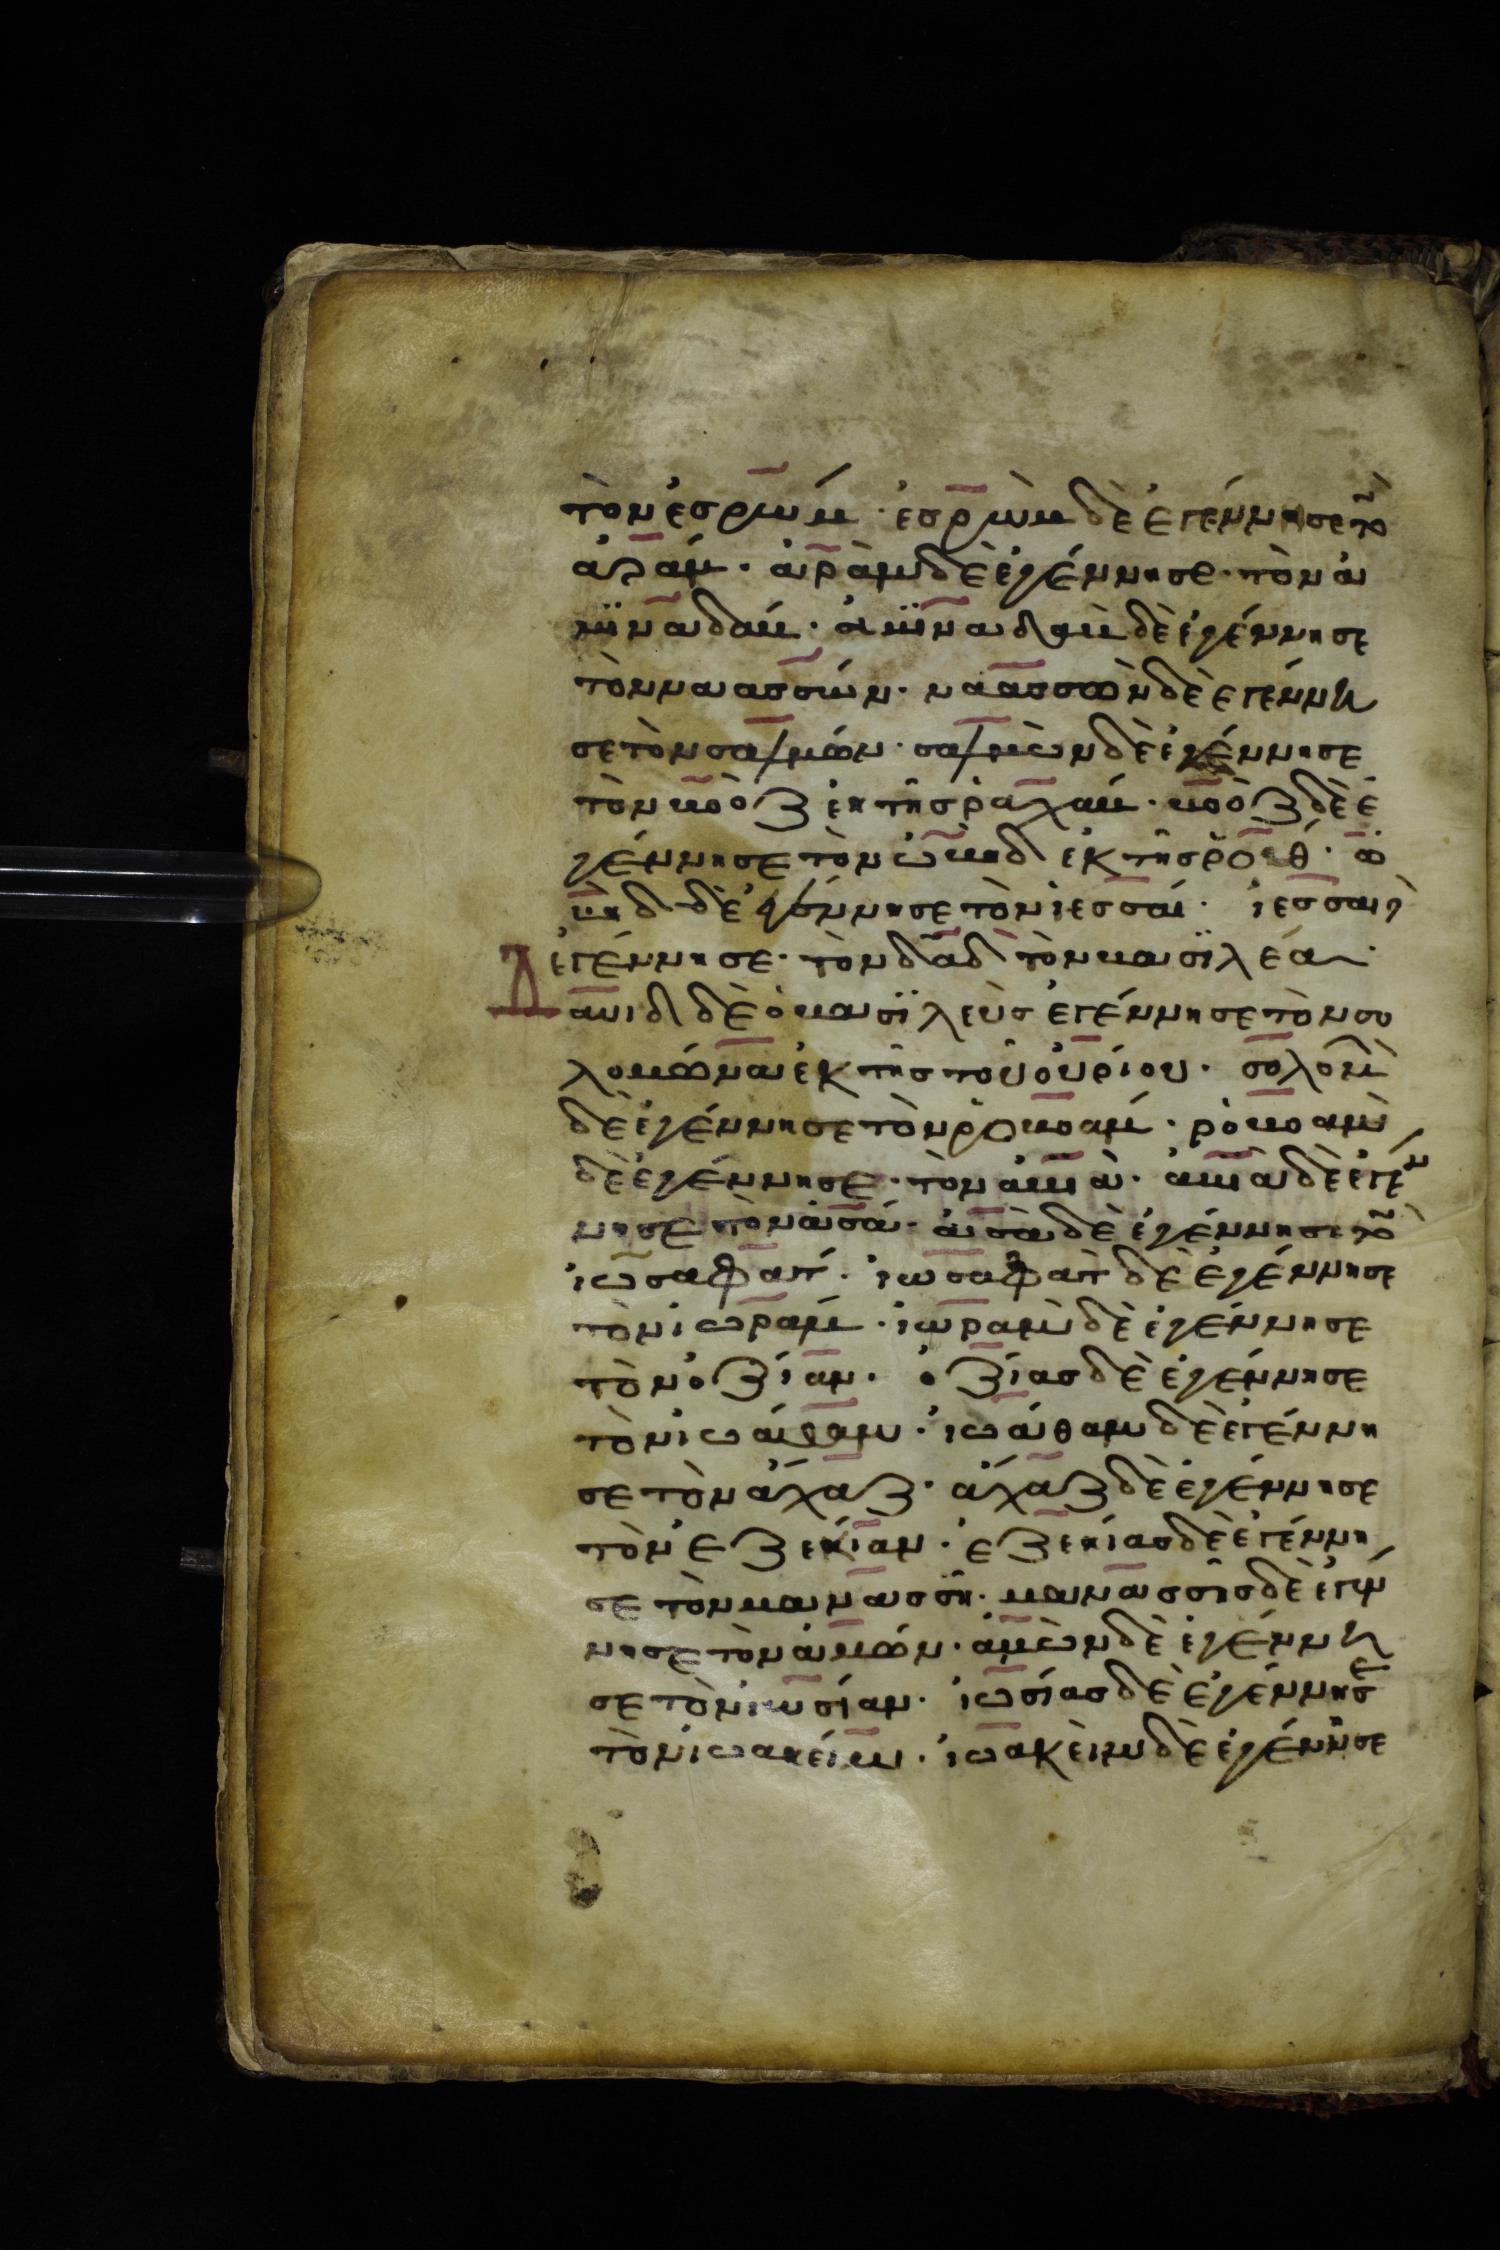 τὸν ἐσρώμ · ἐσρὼμ δὲ ἐγέννησε τὸ̃
ἀράμ · ἀρὰμ δὲ ἐγέννησε · τὸν ἀ
μϊναδάμ · ἀμϊναδὰμ δὲ ἐγέννησε
τὸν ναασσών · ναασσὼν δὲ ἐγέννη
σε τὸν σαλμών · σαλμὼν δὲ ἐγέννησε
τὸν βοὸζ ἐκ τῆς ῥαχάμ · βοὸζ δὲ ἐ
γέννησε τὸν ὠβὴδ ἐκ τῆς ῥούθ · ὠ
βὴδ δὲ ἐγέννησε τὸν ἰεσσαί · ἰεσσαὶ
ἐγέννησε · τὸν δᾶδ τὸν βασϊλέα ·
Δαυιδ δὲ ὁ βασϊλεὺς ἐγέννησε τὸν σο
λομώνα ἐκ τῆς τοῦ οὐρίου · σολομ
δὲ ἐγέννησε τὸν ῥοβοάμ · ῥοβοὰμ
δὲ ἐγέννησε · τὸν ἀβϊὰ · ἀβϊὰ δὲ ἐγέν
νησε τὸν ἀσά · ἀσὰ δὲ ἐγέννησε τὸ̃
ἰωσαφάτ · ἰωσαφὰτ δὲ ἐγέννησε
τὸν ἰωράμ · ἰωρὰμ δὲ ἐγέννησε
τὸν ὀζίαν · ὀζίας δὲ ἐγέννησε
τὸν ἰωάθαμ · ἰωάθαμ δὲ ἐγέννη
σε τὸν ἄχαζ · ἄχαζ δὲ ἐγέννησε
τὸν ἐζεκίαν · ἐζεκίας δὲ ἐγέννη
σε τὸν μανασσῆ · μανασσῆς δὲ ἐγέν
νησε τὸν ἀμών · ἀμὼν δὲ ἐγέννη
σε τὸν ἰωσίαν · ἰωσίας δὲ ἐγέννησε
τὸν ἰωακείμ · ἰωακεὶμ δὲ ἐγέννησε